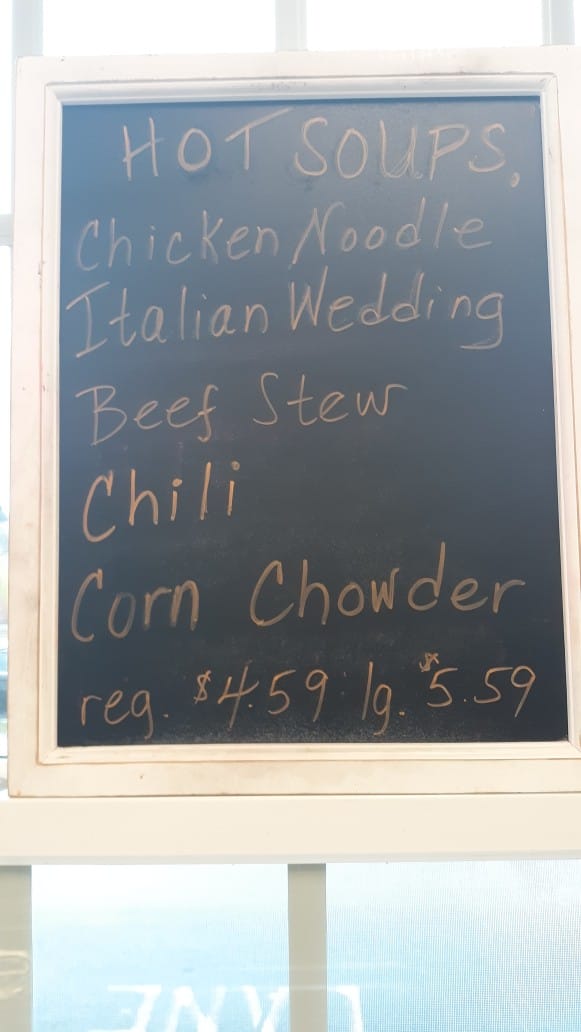 HOT SOUPS,
Chicken Noodle
Italian Wedding
Beef Stew
Chili
Corn Chowder
reg. $4.59 lg. $5.59